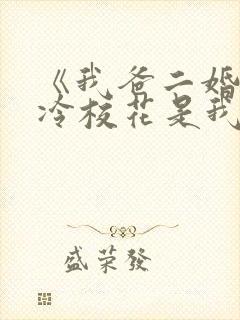 《我爸二婚
冷校花是我
盛荣發